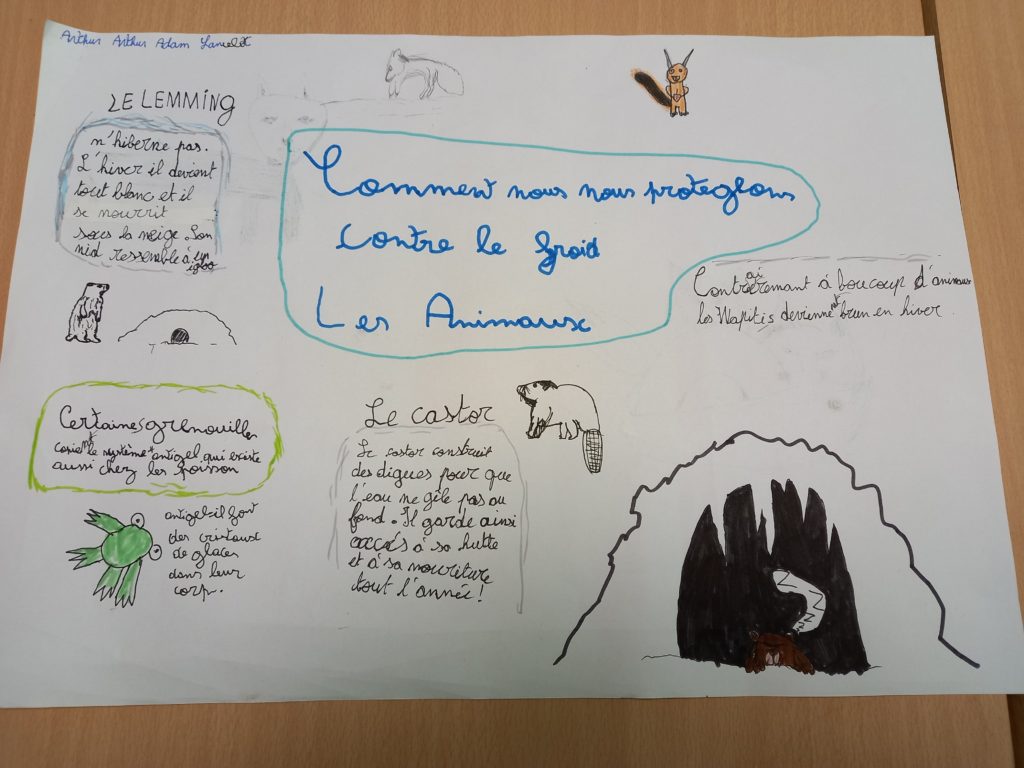 Arthur Arthur Adam Lancelot
LE LEMMING
n'hiberne pas.
L'hiver il devient
tout blanc et il
se nourrit
sous la neige. Son
nid ressemble à un
igloo
Comment nous nous protégeons
contre le froid
Les Animaux
Contrairemant à boucoup d'animaux
les Wapitis devienne brun en hiver.
Certaines grenouilles
le système antigel qui existe
aussi chez les poisson
antigel: il font
des cristaux
de glaces
dans leur
corp.
Le castor
Le castor construit
des digues pour que
l'eau ne gèle pas au
fond. Il garde ainsi
accès à sa hutte
et à sa nouriture
tout l'année!